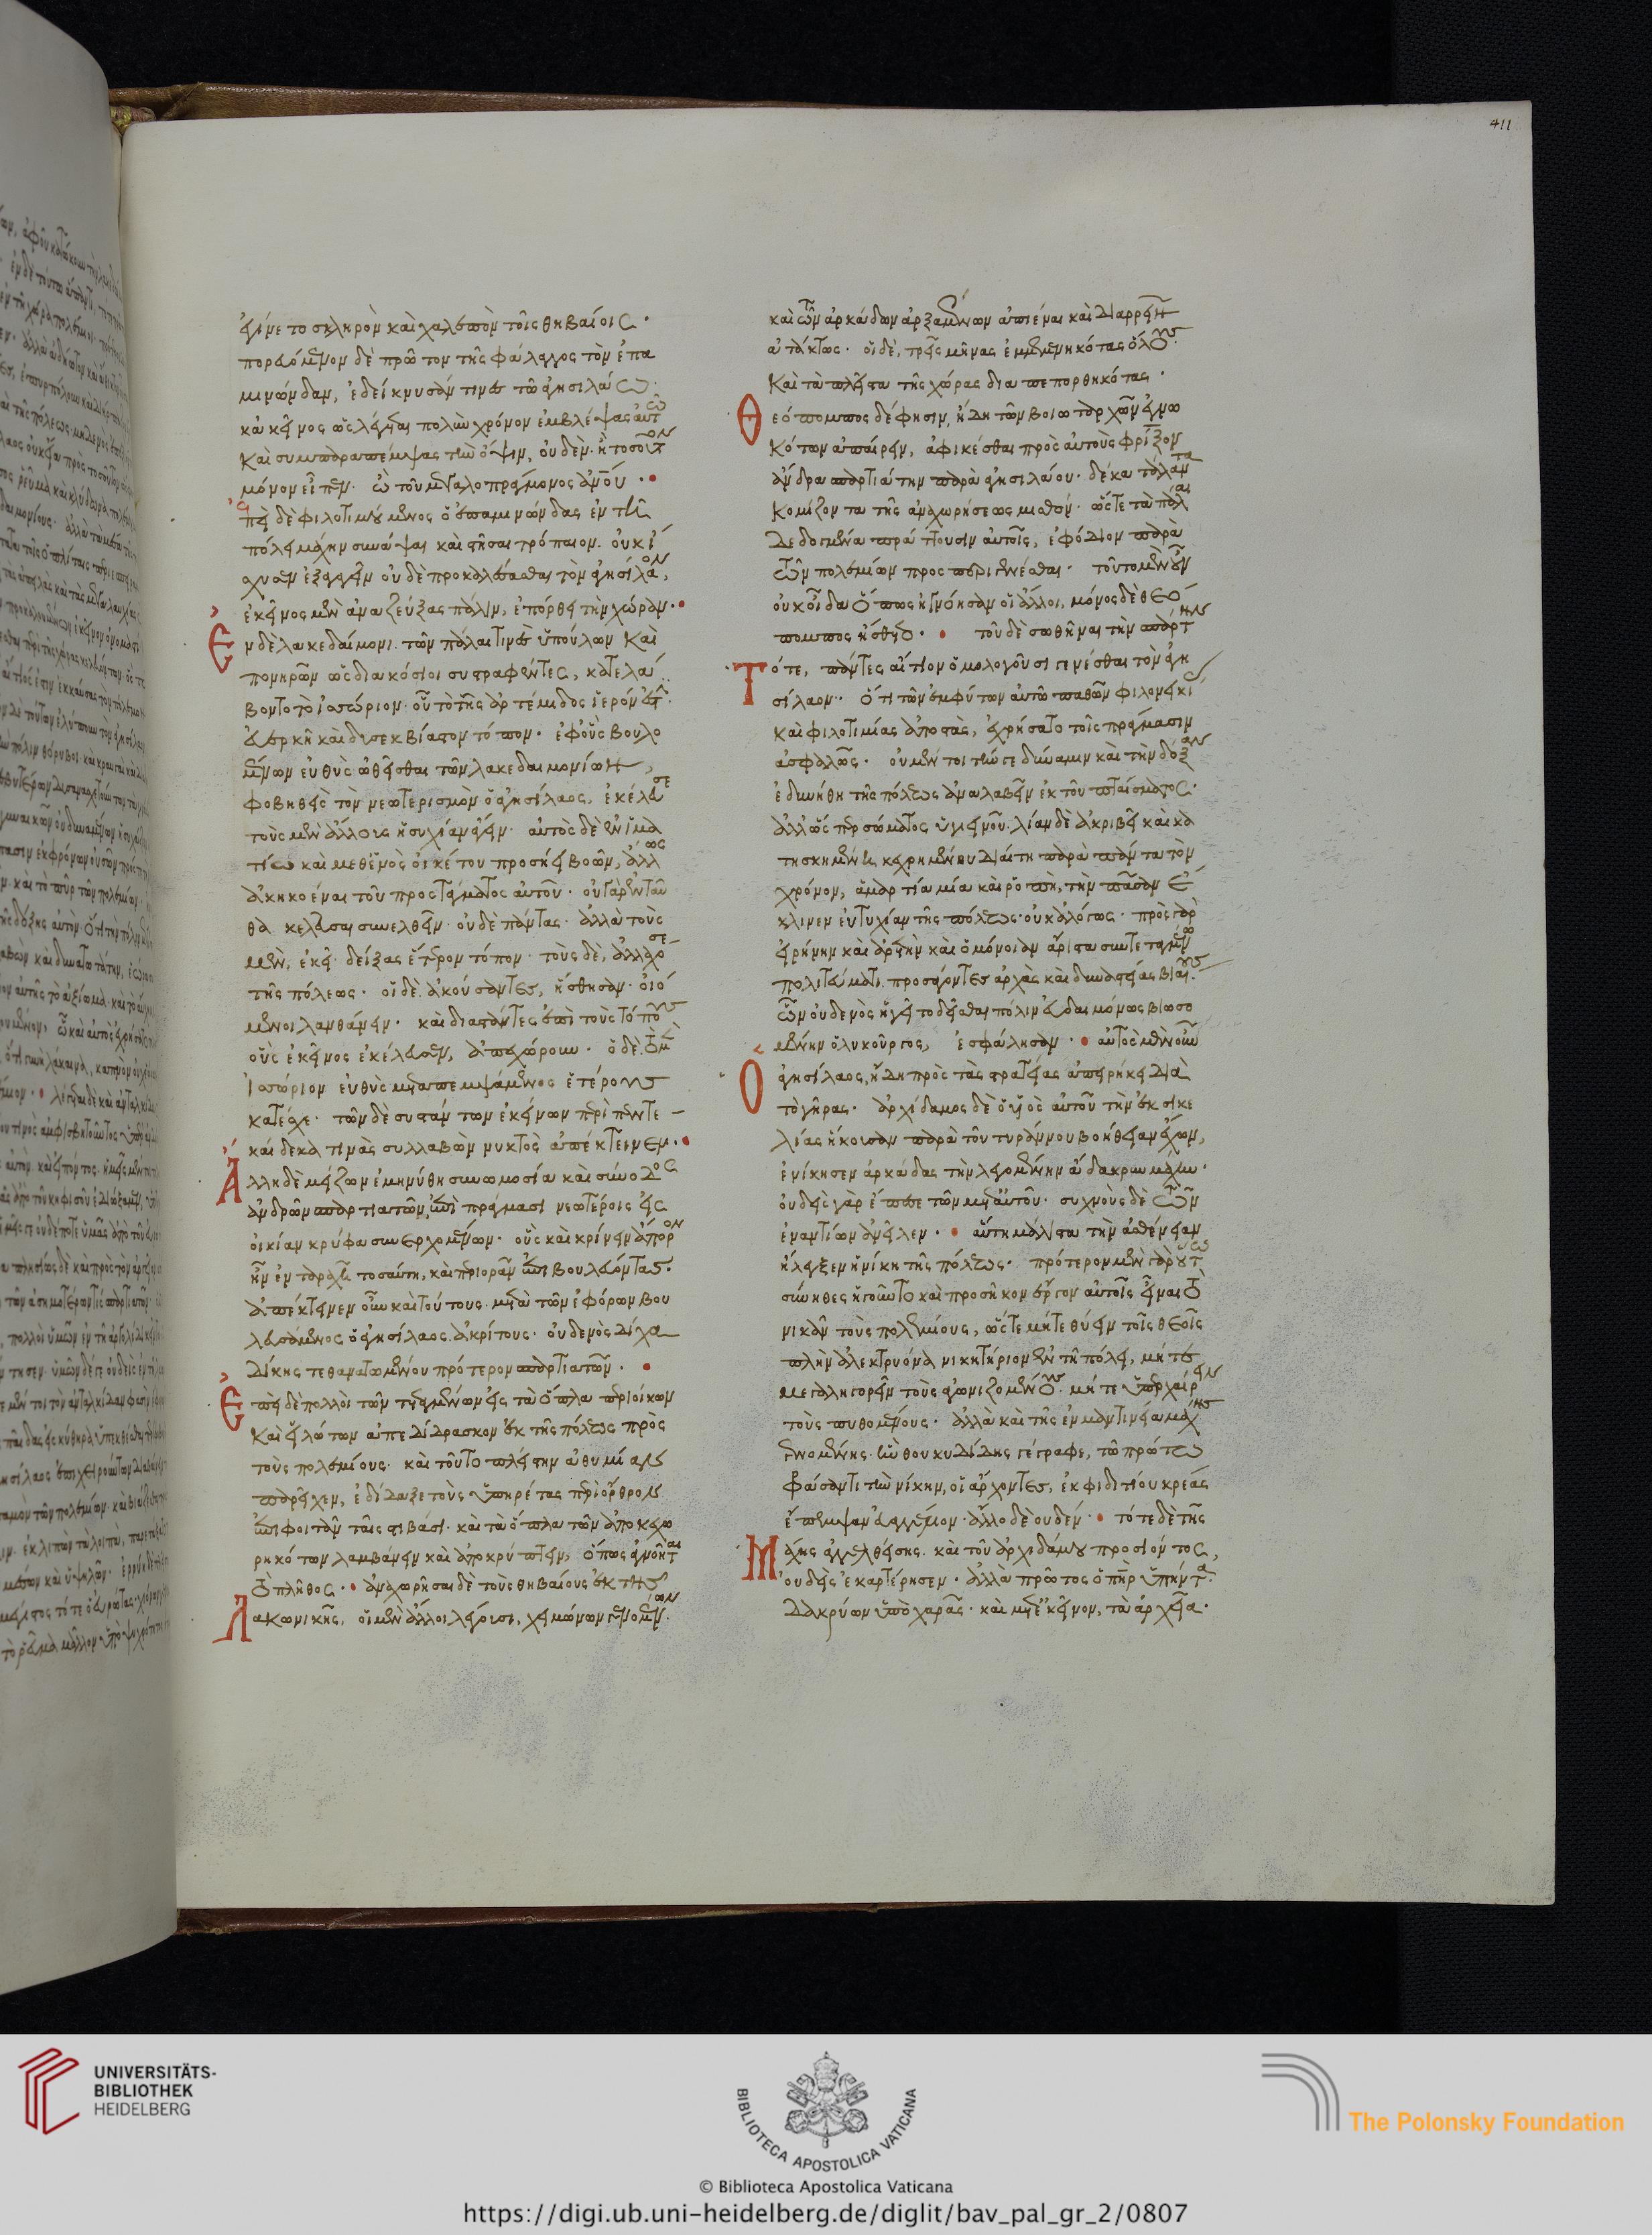 411
ἐγίνετο σκληρὸν καὶ χαλεπὸν τοῖς θηβαίοις·
πορευόμενον δὲ πρῶτον τῆς φάλαγγος τὸν ἐπα
μινώνδαν, ἐδείκνυσάν τινες τῶ ἀγησιλάω·
κἀκεῖνος ὡς λέγεται πολὺν χρόνον ἐμβλέψας αὐτῶ
καὶ συμπαραπέμψας τὴν ὄψιν, οὐδὲν ἢ τοσοῦτον
μόνον εἶπεν· ὢ τοῦ μεγαλοπράγμονος ἀνου·
ἐπεὶ δὲ φιλοτιμούμενος ὁ ἐπαμινώνδας ἐν τῆ
πόλει μάχην συνάψαι καὶ στῆσαι τρόπαιον. οὐκ ἴ
σχυσεν ἐξαγαγεῖν οὐδὲ προκαλέσασθαι τὸν ἀγησίλαον,
ἐκεῖνος μὲν ἀναζεύξας πάλιν, ἐπόρθει τὴν χώραν·
Ἐν δὲ λακεδαίμονι. τῶν πάλαι τινὲς ὑπούλων καὶ
πονηρῶν ὡς διακόσιοι συστραφέντες, κατελά
βοντο τὸ ἰσσώριον. οὗ τὸ τῆς ἀρτέμιδος ἱερόν ἐστιν·
εὐερκῆ καὶ δυσεκβίαστον τόπον· ἐφ' οὓς βουλο
μένων εὐθὺς ὠθεῖσθαι τῶν λακεδαιμονίων,
φοβηθεὶς τὸν νεωτερισμὸν ὁ ἀγησίλαος, ἐκέλευσε
τοὺς μὲν ἄλλους ἡσυχίαν ἄγειν· αὐτὸς δὲ ἐν ἱμα
τίω καὶ μεθ' ἑνὸς οἰκέτου προσήει βοῶν, ἄλλως
ἀκηκοέναι τοῦ προστάγματος αὐτοῦ· οὐ γὰρ ἐνταῦ
θα κελεῦσαι συνελθεῖν· οὐδὲ πάντας· ἀλλὰ τοὺς
μὲν, ἐκεῖ· δείξας ἕτερον τόπον· τοὺς δὲ, ἀλλαχόσε
τῆς πόλεως· οἱ δὲ ἀκούσαντες, ἥσθησαν· οἰό
μενοι λανθάνειν· καὶ διαστάντες ἐπὶ τοὺς τόπους
οὓς ἐκεῖνος ἐκέλευσεν, ἀπεχώρουν· ὁ δὲ τὸ μὲν
ἰσσώριον εὐθὺς μεταπεμψάμενος ἑτέρους
κατέσχε· τῶν δὲ συστάντων ἐκείνων περὶ πεντε
καίδεκά τινας συλλαβὼν νυκτὸς ἀπέκτεινεν·
Ἄλλη δὲ μείζων ἐμηνύθη συνωμοσία καὶ σύνοδος
ἀνδρῶν σπαρτιατῶν, ἐπὶ πράγμασι νεωτέροις εἰς
οἰκίαν κρύφα συνερχομένων· οὓς καὶ κρίνειν ἄπορον
ἦν ἐν ταραχῆ τοσαύτη, καὶ περιορᾶν ἐπιβουλεύοντας·
ἀπέκτεινεν οὖν καὶ τούτους. μετὰ τῶν ἐφόρων βου
λευσάμενος ὁ ἀγησίλαος ἀκρίτους· οὐδενὸς δίχα
δίκης τεθανατωμένου πρότερον σπαρτιατῶν·
Ἐπεὶ δὲ πολλοὶ τῶν τεταγμένων εἰς τὰ ὅπλα περιοίκων
καὶ εἱλώτων ἀπεδίδρασκον ἐκ τῆς πόλεως πρὸς
τοὺς πολεμίους· καὶ τοῦτο πλείστην ἀθυμίαν
παρεῖχεν, ἐδίδαξε τοὺς ὑπηρέτας περὶ ὄρθρον
ἐπιφοιτᾶν ταῖς στιβάσι· καὶ τὰ ὅπλα τῶν ἀποκεχω
ρηκότων λαμβάνειν καὶ ἀποκρύπτειν, ὅπως ἀγνοῆται
τὸ πλῆθος· ἀναχωρῆσαι δὲ τοὺς θηβαίους ἐκ τῆς
Λακωνικῆς, οἱ μὲν ἄλλοι λέγουσι, χειμώνων γενομένων·
καὶ τῶν ἀρκάδων ἀρξαμένων ἀπιέναι καὶ διαρρεῖν
ἀτάκτως· οἱ δὲ, τρεῖς μῆνας ἐμμεμενηκότας ὅλους·
καὶ τὰ πλεῖστα τῆς χώρας διαπεπορθηκότας·
Θεόπομπος δέ φησιν, ἤδη τῶν βοιωταρχῶν ἐγνω
κότων ἀπαίρειν, ἀφικέσθαι πρὸς αὐτοὺς φρίξον
ἄνδρα σπαρτιάτην παρὰ ἀγησιλάου· δέκα τάλαντα
κομίζοντα τῆς ἀναχωρήσεως μισθόν· ὥστε τὰ πάλαι
δεδογμένα πράττουσιν αὐτοῖς, ἐφόδιον παρὰ
τῶν πολεμίων προσπεριγενέσθαι· τοῦτο μὲν οὖν
οὐκ οἶδα ὅπως ἠγνόησαν οἱ ἄλλοι, μόνος δὲ θεό
πομπος ἤσθετο· τοῦ δὲ σωθῆναι τὴν σπάρτην
Τότε, πάντες αἴτιον ὁμολογοῦσι γενέσθαι τὸν ἀγη
σίλαον· ὅτι τῶν ἐμφύτων αὐτῶ παθῶν φιλονεικί
καὶ φιλοτιμίας ἀποστὰς, ἐχρήσατο τοῖς πράγμασιν
ἀσφαλῶς· οὐ μέν τοι τήν γε δύναμιν καὶ τὴν δόξαν
ἐδυνήθη τῆς πόλεως ἀναλαβεῖν ἐκ τοῦ πταίσματος·
ἀλλ' ὥσπερ σώματος ὑγιεινοῦ. λίαν δὲ ἀκριβεῖ καὶ κα
τησκημένη κεχρημένου διαίτη παρὰ πάντα τὸν
χρόνον, ἁμαρτία μία καὶ ῥοπὴ, τὴν πᾶσαν ἔ
κλινεν εὐτυχίαν τῆς πόλεως· οὐκ ἀλόγως· πρὸς γὰρ
εἰρήνην καὶ ἀρετὴν καὶ ὁμόνοιαν ἄριστα συντεταγμένω
πολιτεύματι. προσαγόντες ἀρχὰς καὶ δυναστείας βιαίους·
ὧν οὐδενὸς ἡγεῖτο δεῖσθαι πόλιν εὐδαιμόνως βιωσο
μένην ὁ λυκοῦργος, ἐσφάλησαν· αὐτὸς μὲν οὖν
Ὁ ἀγησίλαος, ἤδη πρὸς τὰς στρατείας ἀπειρήκει διὰ
τὸ γῆρας· ἀρχίδαμος δὲ ὁ υἱὸς αὐτοῦ τὴν ἐκ σικε
λίας ἥκουσαν παρὰ τοῦ τυράννου βοήθειαν ἔχων,
ἐνίκησεν ἀρκάδας τὴν λεγομένην ἄδακρυν μάχην·
οὐδεὶς γὰρ ἔπεσε τῶν μετ' αὐτοῦ· συχνοὺς δὲ τῶν
ἐναντίων ἀνεῖλεν· αὕτη μάλιστα τὴν ἀσθένειαν
ἤλεγξεν ἡ νίκη τῆς πόλεως· πρότερον μὲν γὰρ οὕτω
σύνηθες ἡγοῦντο καὶ προσῆκον ἔργον αὐτοῖς εἶναι τὸ
νικᾶν τοὺς πολεμίους, ὥστε μήτε θύειν τοῖς θεοῖς
πλὴν ἀλεκτρυόνα νικητήριον ἐν τῆ πόλει, μήτε
μεγαληγορεῖν τοὺς ἀγωνιζομένους· μήτε ὑπερχαίρειν
τοὺς πυθομένους· ἀλλὰ καὶ τῆς ἐν μαντινεία μάχης
γενομένης. ἣν θουκυδίδης γέγραφε, τῶ πρώτω
φράσαντι τὴν νίκην, οἱ ἄρχοντες, ἐκ φιδιτίου κρέας
ἔπεμψαν εὐαγγέλιον· ἄλλο δὲ οὐδέν· τότε δὲ τῆς
Μάχης ἀγγελθείσης. καὶ τοῦ ἀρχιδάμου προσιόντος,
οὐδεὶς ἐκαρτέρησεν· ἀλλὰ πρῶτος ὁ πηρ ὑπήντα·
δακρύων ὑπὸ χαρᾶς· καὶ μετ' ἐκεῖνον, τὰ ἀρχεῖα·
UNIVERSITÄTS-
BIBLIOTHEK
HEIDELBERG
BIBLIOTECA APOSTOLICA VATICANA
The Polonsky Foundation
© Biblioteca Apostolica Vaticana
https://digi.ub.uni-heidelberg.de/diglit/bav_pal_gr_2/0807